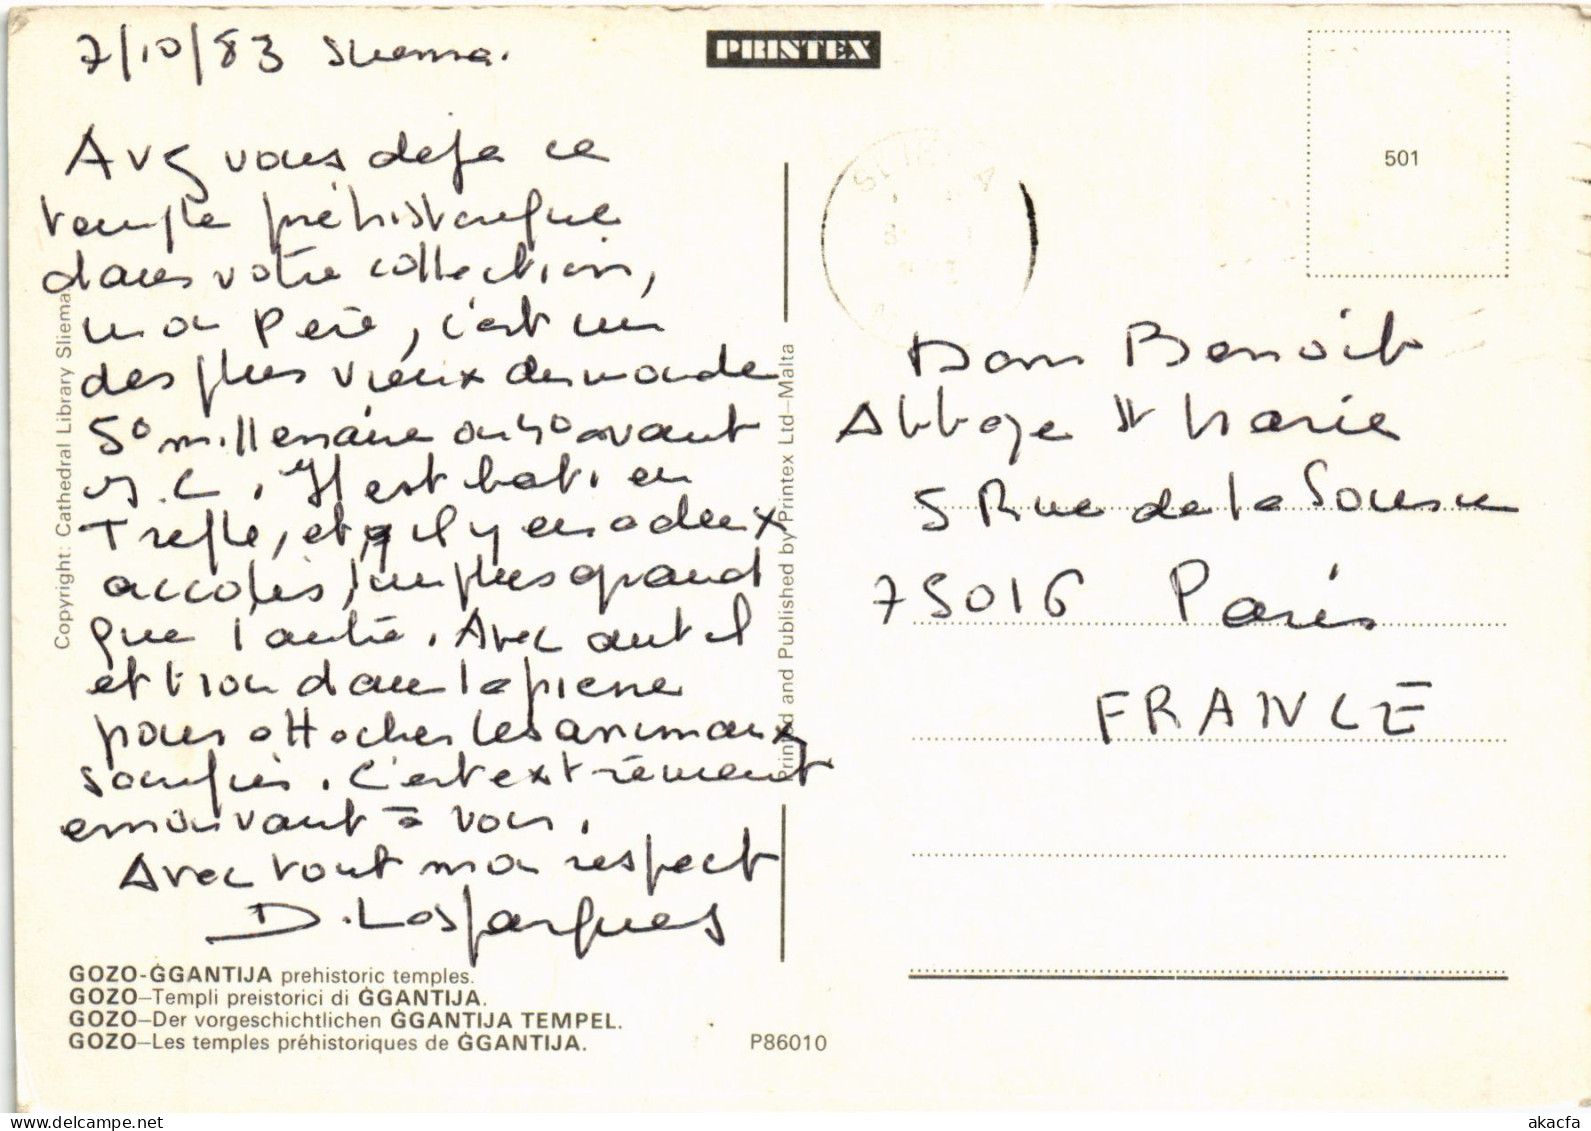 7/10/83 Sliema.
PRINTEX
501
Avez vous deja ce
temple préhistorique
dans votre collection,
mon Père, c'est un
des plus vieux du monde
5º millenaire ou 4º avant
J.C. Il est bati en
Trefle, et, il y en a deux
accolés, l'un plus grand
que l'autre. Avec autel
et trou dans la pierre
pour attacher les animaux
C'est extrêmement
emouvant à voir.
Avec tout mon respect
D.
SLIEMA
Dom Benoit
Abbaye Ste Marie
5 Rue de la Source
75016 Paris
FRANCE
Copyright: Cathedral Library Sliema
Printed and Published by Printex Ltd—Malta
GOZO-ĠGANTIJA prehistoric temples.
GOZO—Templi preistorici di ĠGANTIJA.
GOZO—Der vorgeschichtlichen ĠGANTIJA TEMPEL.
GOZO—Les temples préhistoriques de ĠGANTIJA.
P86010
www.delcampe.net
akacfa